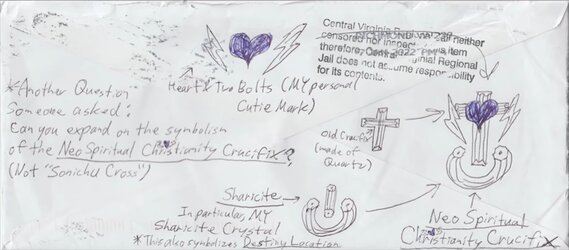 Central Virginia Regional
Jail neither
censored nor inspected this item
therefore, Central Virginia Regional
Jail does not assume responsibility
for its contents.
RICHMOND
2022 PM
Heart & Two Bolts (MY personal
Cutie Mark)
*Another Question
Someone asked:
Can you expand on the symbolism
of the Neo Spiritual Christianity Crucifix?
(Not "Sonichu Cross")
Old Crucifix
(made of
Quartz)
Sharicite
In particular, MY
Sharicite Crystal
*This also symbolizes Destiny Location.
Neo Spiritual
Christianity Crucifix